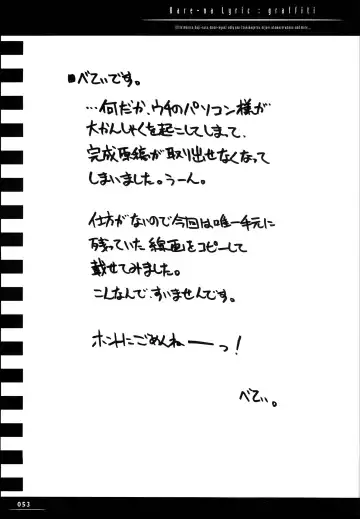 Hare-na Lyric : graffiti
■べてぃです。
…何だか、ウチのパソコン様が
大かんしゃくを起こしてしまって、
完成原稿が取り出せなくなって
しまいました。うーん。
仕方がないので今回は唯一手元に
残っていた線画をコピーして
載せてみました。
こんなんで、すいませんです。
ホントにごめんねーーっ!
べてぃ。
053